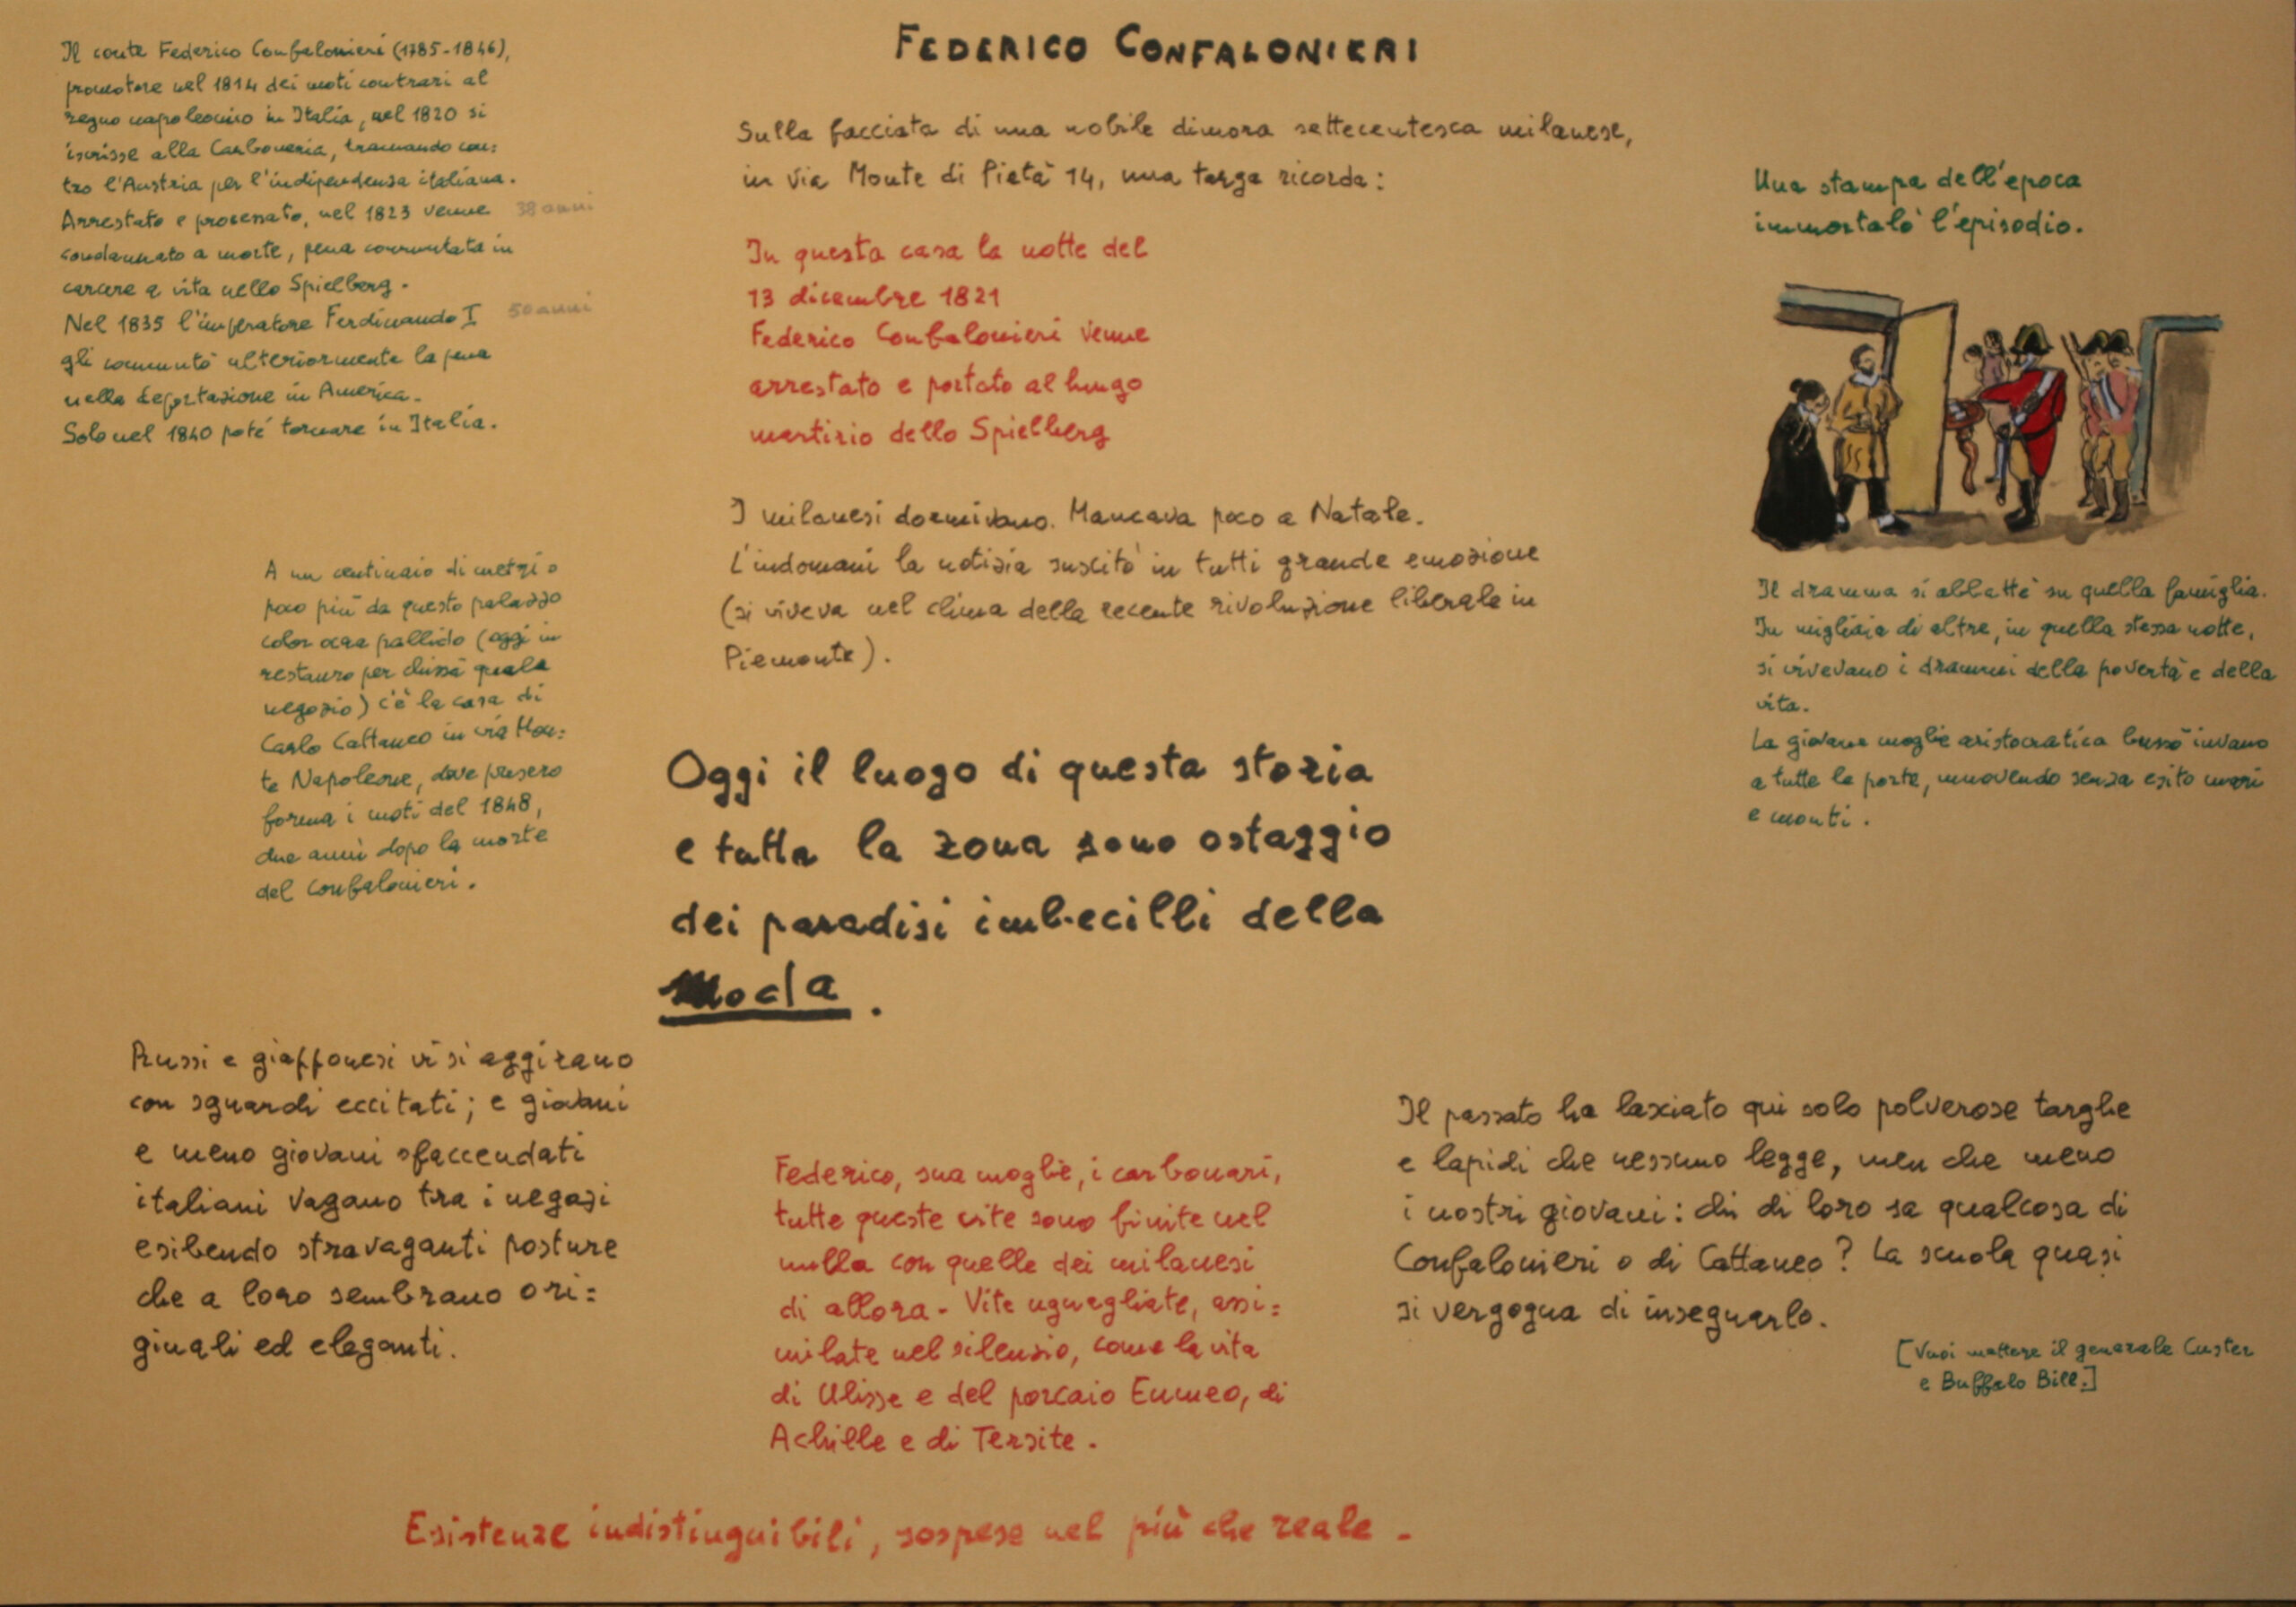 FEDERICO CONFALONIERI
Il conte Federico Confalonieri (1785-1846),
promotore nel 1814 dei moti contrari al
regno napoleonico in Italia, nel 1820 si
iscrisse alla Carboneria, tramando con=
tro l'Austria per l'indipendenza italiana.
Arrestato e processato, nel 1823 venne 38 anni
condannato a morte, pena commutata in
carcere a vita nello Spielberg.
Nel 1835 l'imperatore Ferdinando I 50 anni
gli commutò ulteriormente la pena
nella deportazione in America.
Solo nel 1840 poté tornare in Italia.
A un centinaio di metri o
poco più da questo palazzo
color ocra pallido (oggi in
restauro per chissà quale
negozio) c'è la casa di
Carlo Cattaneo in via Mon=
te Napoleone, dove presero
forma i moti del 1848,
due anni dopo la morte
del Confalonieri.
Sulla facciata di una nobile dimora settecentesca milanese,
in via Monte di Pietà 14, una targa ricorda:
In questa casa la notte del
13 dicembre 1821
Federico Confalonieri venne
arrestato e portato al lungo
martirio dello Spielberg
I milanesi dormivano. Mancava poco a Natale.
L'indomani la notizia suscitò in tutti grande emozione
(si viveva nel clima della recente rivoluzione liberale in
Piemonte).
Una stampa dell'epoca
immortalò l'episodio.
Il dramma si abbatté su quella famiglia.
In migliaia di altre, in quella stessa notte,
si vivevano i drammi della povertà e della
vita.
La giovane moglie aristocratica bussò invano
a tutte le porte, muovendo senza esito mari
e monti.
Oggi il luogo di questa storia
e tutta la zona sono ostaggio
dei paradisi imbecilli della
moda.
Russi e giapponesi vi si aggirano
con sguardi eccitati; e giovani
e meno giovani sfaccendati
italiani vagano tra i negozi
esibendo stravaganti posture
che a loro sembrano ori=
ginali ed eleganti.
Federico, sua moglie, i carbonari,
tutte queste vite sono finite nel
nulla con quelle dei milanesi
di allora. Vite uguagliate, assi=
milate nel silenzio, come la vita
di Ulisse e del porcaio Eumeo, di
Achille e di Tersite.
Il passato ha lasciato qui solo polverose targhe
e lapidi che nessuno legge, men che meno
i nostri giovani: chi di loro sa qualcosa di
Confalonieri o di Cattaneo? La scuola quasi
si vergogna di insegnarlo.
[Vuoi mettere il generale Custer
e Buffalo Bill.]
Esistenze indistinguibili, sospese nel più che reale.